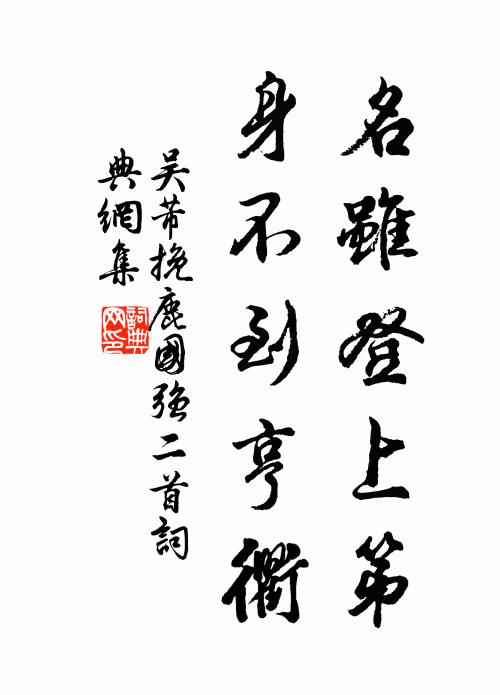 名雖登上第
身不到亨衢
吴芾挽鹿國強二首詞
典網集
詞典网印